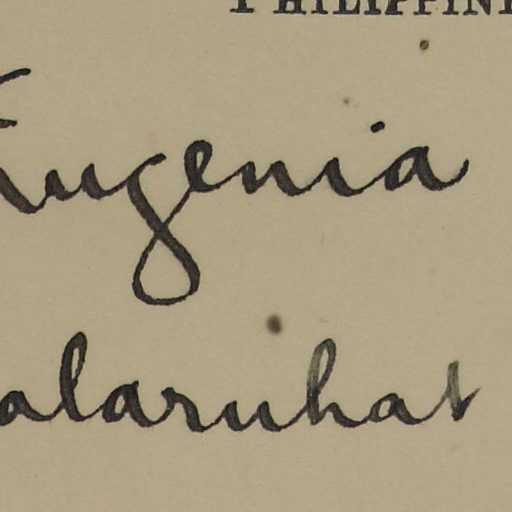 PHILIPPINE
Eugenia
alaruhat